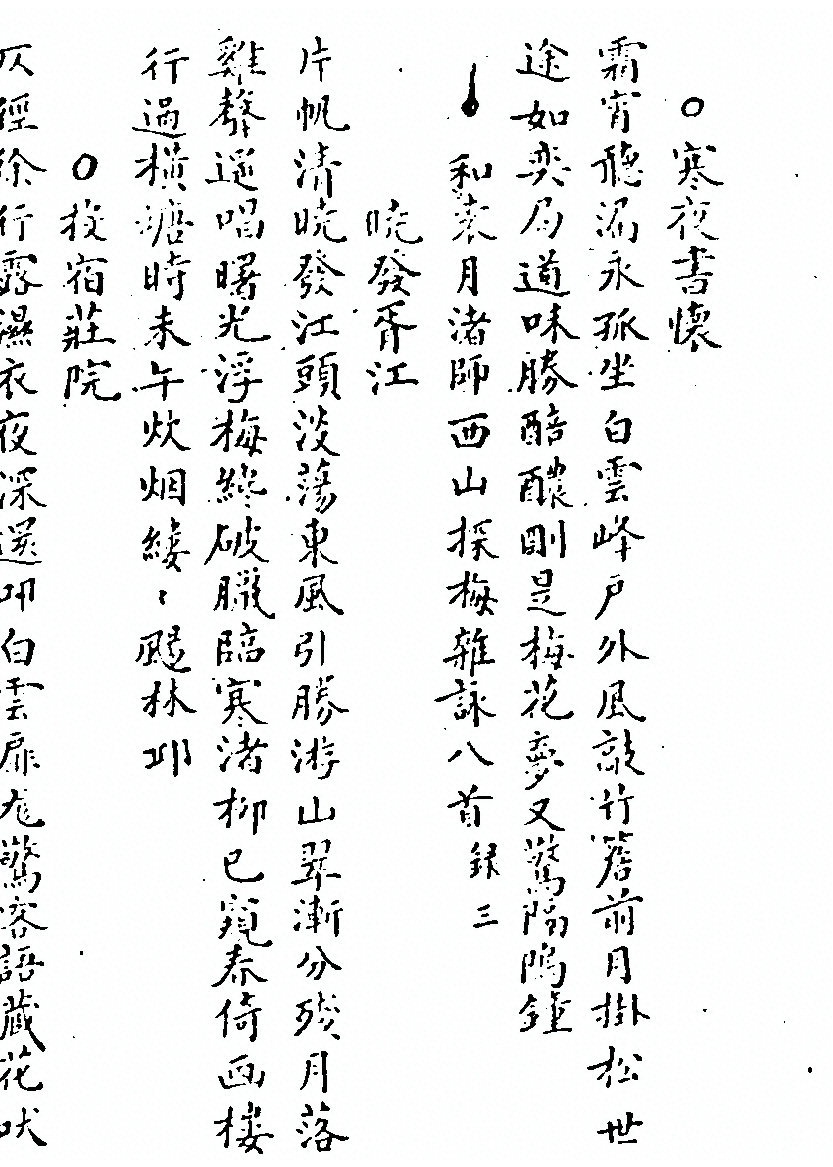 ○寒夜書懷
霜宵聽漏永孤坐白雲峰戶外風敲竹簷前月掛松世
途如奕局道味勝醅醲剛是梅花夢又驚隔隖鐘
和袁月渚師西山探梅雜詠八首錄三
曉發胥江
片帆清曉發江頭淡蕩東風引勝游山翠漸分殘月落
雞聲遥唱曙光浮梅纔破臘臨寒渚柳已窺春倚画樓
行過橫塘時未午炊烟縷〻颺林邱
○投宿莊院
仄徑徐行露濕衣夜深還叩白雲扉尨驚客語藏花吠